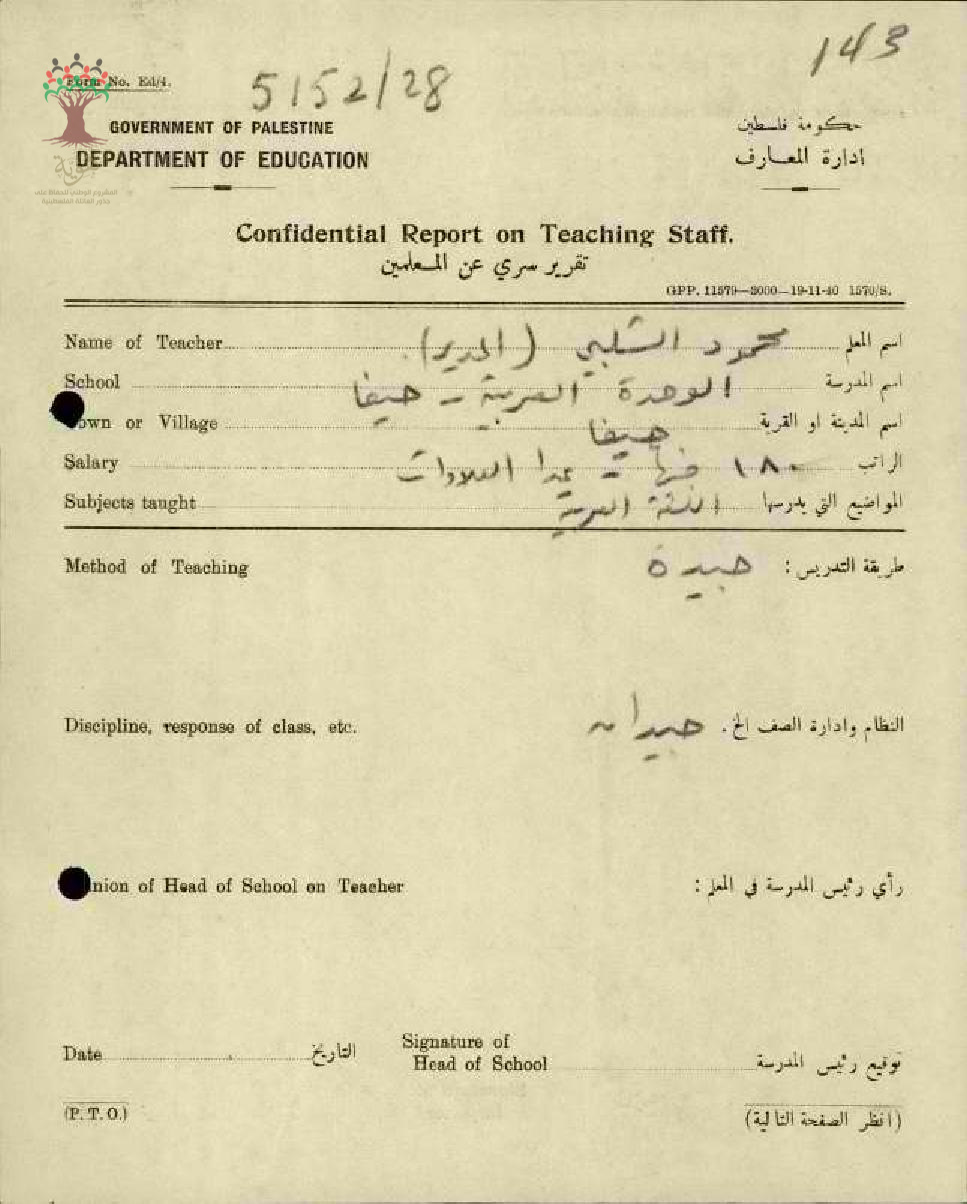 143
5152/28
Form No. Ed/4.
GOVERNMENT OF PALESTINE حكومة فلسطين
DEPARTMENT OF EDUCATION ادارة المعارف
هوية
المشروع الوطني للحفاظ على
جذور العائلة الفلسطينية
Confidential Report on Teaching Staff.
تقرير سري عن المعلمين
GPP. 11579—3000—19-11-40 1570/S.
Name of Teacher محمود الشلبي (المدير). اسم المعلم
School الوحدة العربية - حيفا اسم المدرسة
own or Village حيفا اسم المدينة او القرية
Salary ١٨٠ عدا العلاوات الراتب
Subjects taught اللغة العربية المواضيع التي يدرسها
Method of Teaching جيدة طريقة التدريس :
Discipline, response of class, etc. جيدان النظام وادارة الصف الخ.
nion of Head of School on Teacher رأي رئيس المدرسة في المعلم :
Date التاريخ Signature of
Head of School توقيع رئيس المدرسة
(P. T. O.) (انظر الصفحة التالية)